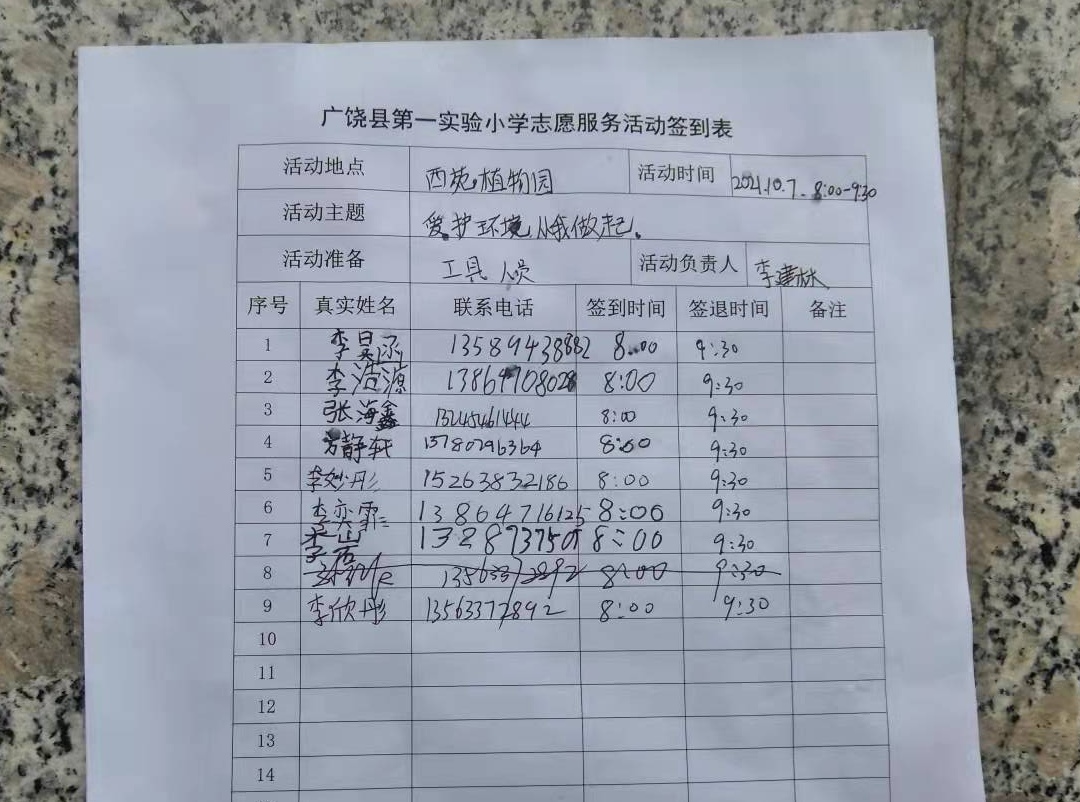 广饶县第一实验小学志愿服务活动签到表
活动地点 西苑植物园 活动时间 2021.10.7. 8:00-9:30
活动主题 爱护环境从我做起.
活动准备 工具 人员 活动负责人 李建林
序号 真实姓名 联系电话 签到时间 签退时间 备注
1 李昊函 13589438882 8:00 9:30
2 李浩源 8:00 9:30
3 张海鑫 13245461444 8:00 9:30
4 静轩 13780796364 8:00 9:30
5 李妙彤 15263832186 8:00 9:30
6 李奕霏 13864716125 8:00 9:30
7 8:00 9:30
8 8:00 9:30
9 李欣彤 13563377892 8:00 9:30
10
11
12
13
14